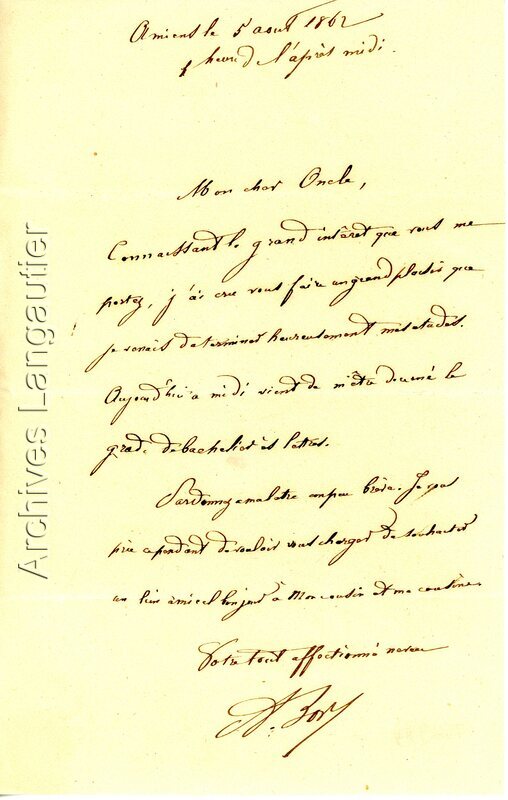 Amiens le 5 aout 1862
1 heure de l'après midi.
Mon cher Oncle,
Connaissant le grand intérêt que vous me
portez, j'ai cru vous faire un grand plaisir que
je venais de terminer heureusement mes etudes.
Aujourd'hui a midi vient de m'être décerné le
grade de bachelier ès lettres.
Pardonnez ma lettre un peu brève. Je vous
prie cependant de vouloir vous charger de souhaiter
un bien amical bonjour à mon cousin et ma cousine.
Votre tout affectionné neveu
Archives Langautier